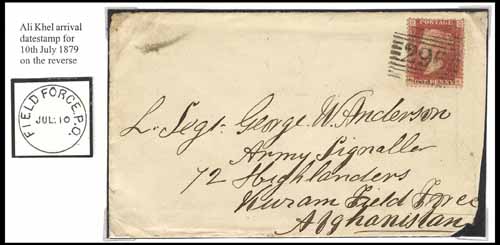 Ali Khel arrival
datestamp for
10th July 1879
on the reverse
FIELD FORCE.P.O.
JUL:10
POSTAGE
ONE PENNY
L. Segt. George W. Anderson
Army Signaller
72 Highlanders
Kuram Field Force
Afghanistan